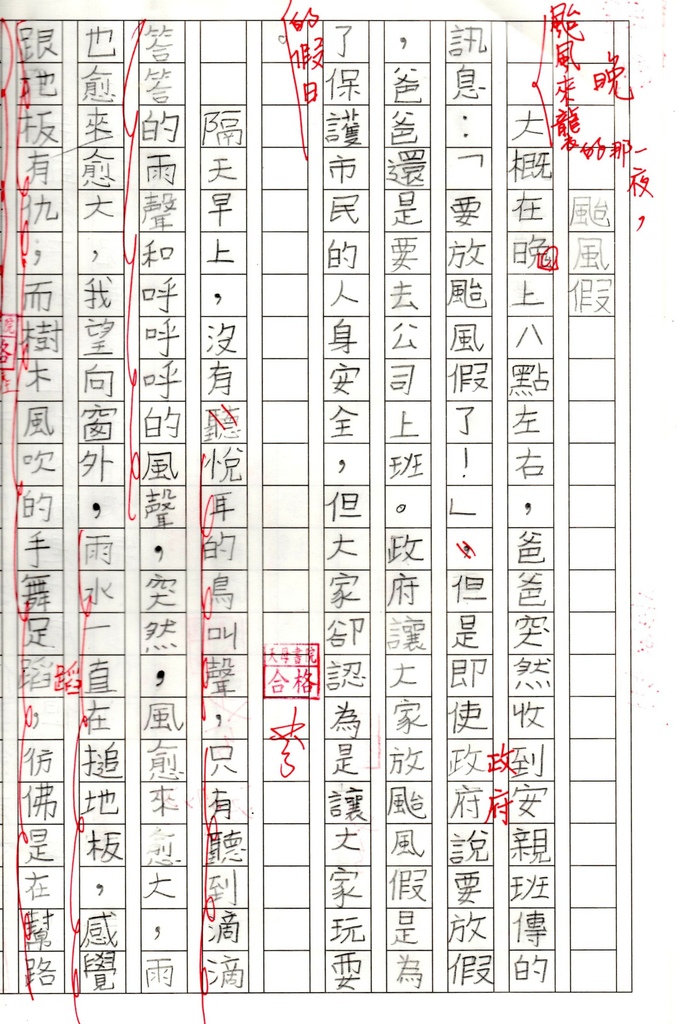 颱風假
大概在晚上八點左右，爸爸突然收到安親班傳的
訊息：「要放颱風假了！」，但是即使政府說要放假
，爸爸還是要去公司上班。政府讓大家放颱風假是為
了保護市民的人身安全，但大家卻認為是讓大家玩耍
。
隔天早上，沒有聽悅耳的鳥叫聲，只有聽到滴滴
答答的雨聲和呼呼的風聲，突然，風愈來愈大，雨
也愈來愈大，我望向窗外，雨水一直在搥地板，感覺
跟地板有仇；而樹木風吹的手舞足蹈，彷彿是在幫路
颱風來襲的那一夜，
晚
政府
的假日
天母書院
合格
蹈